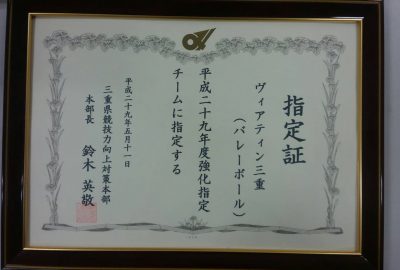 指定証
ヴィアティン三重
(バレーボール)
平成二十九年度強化指定
チームに指定する
平成二十九年五月十一日
三重県競技力向上対策本部
本部長 鈴木英敬